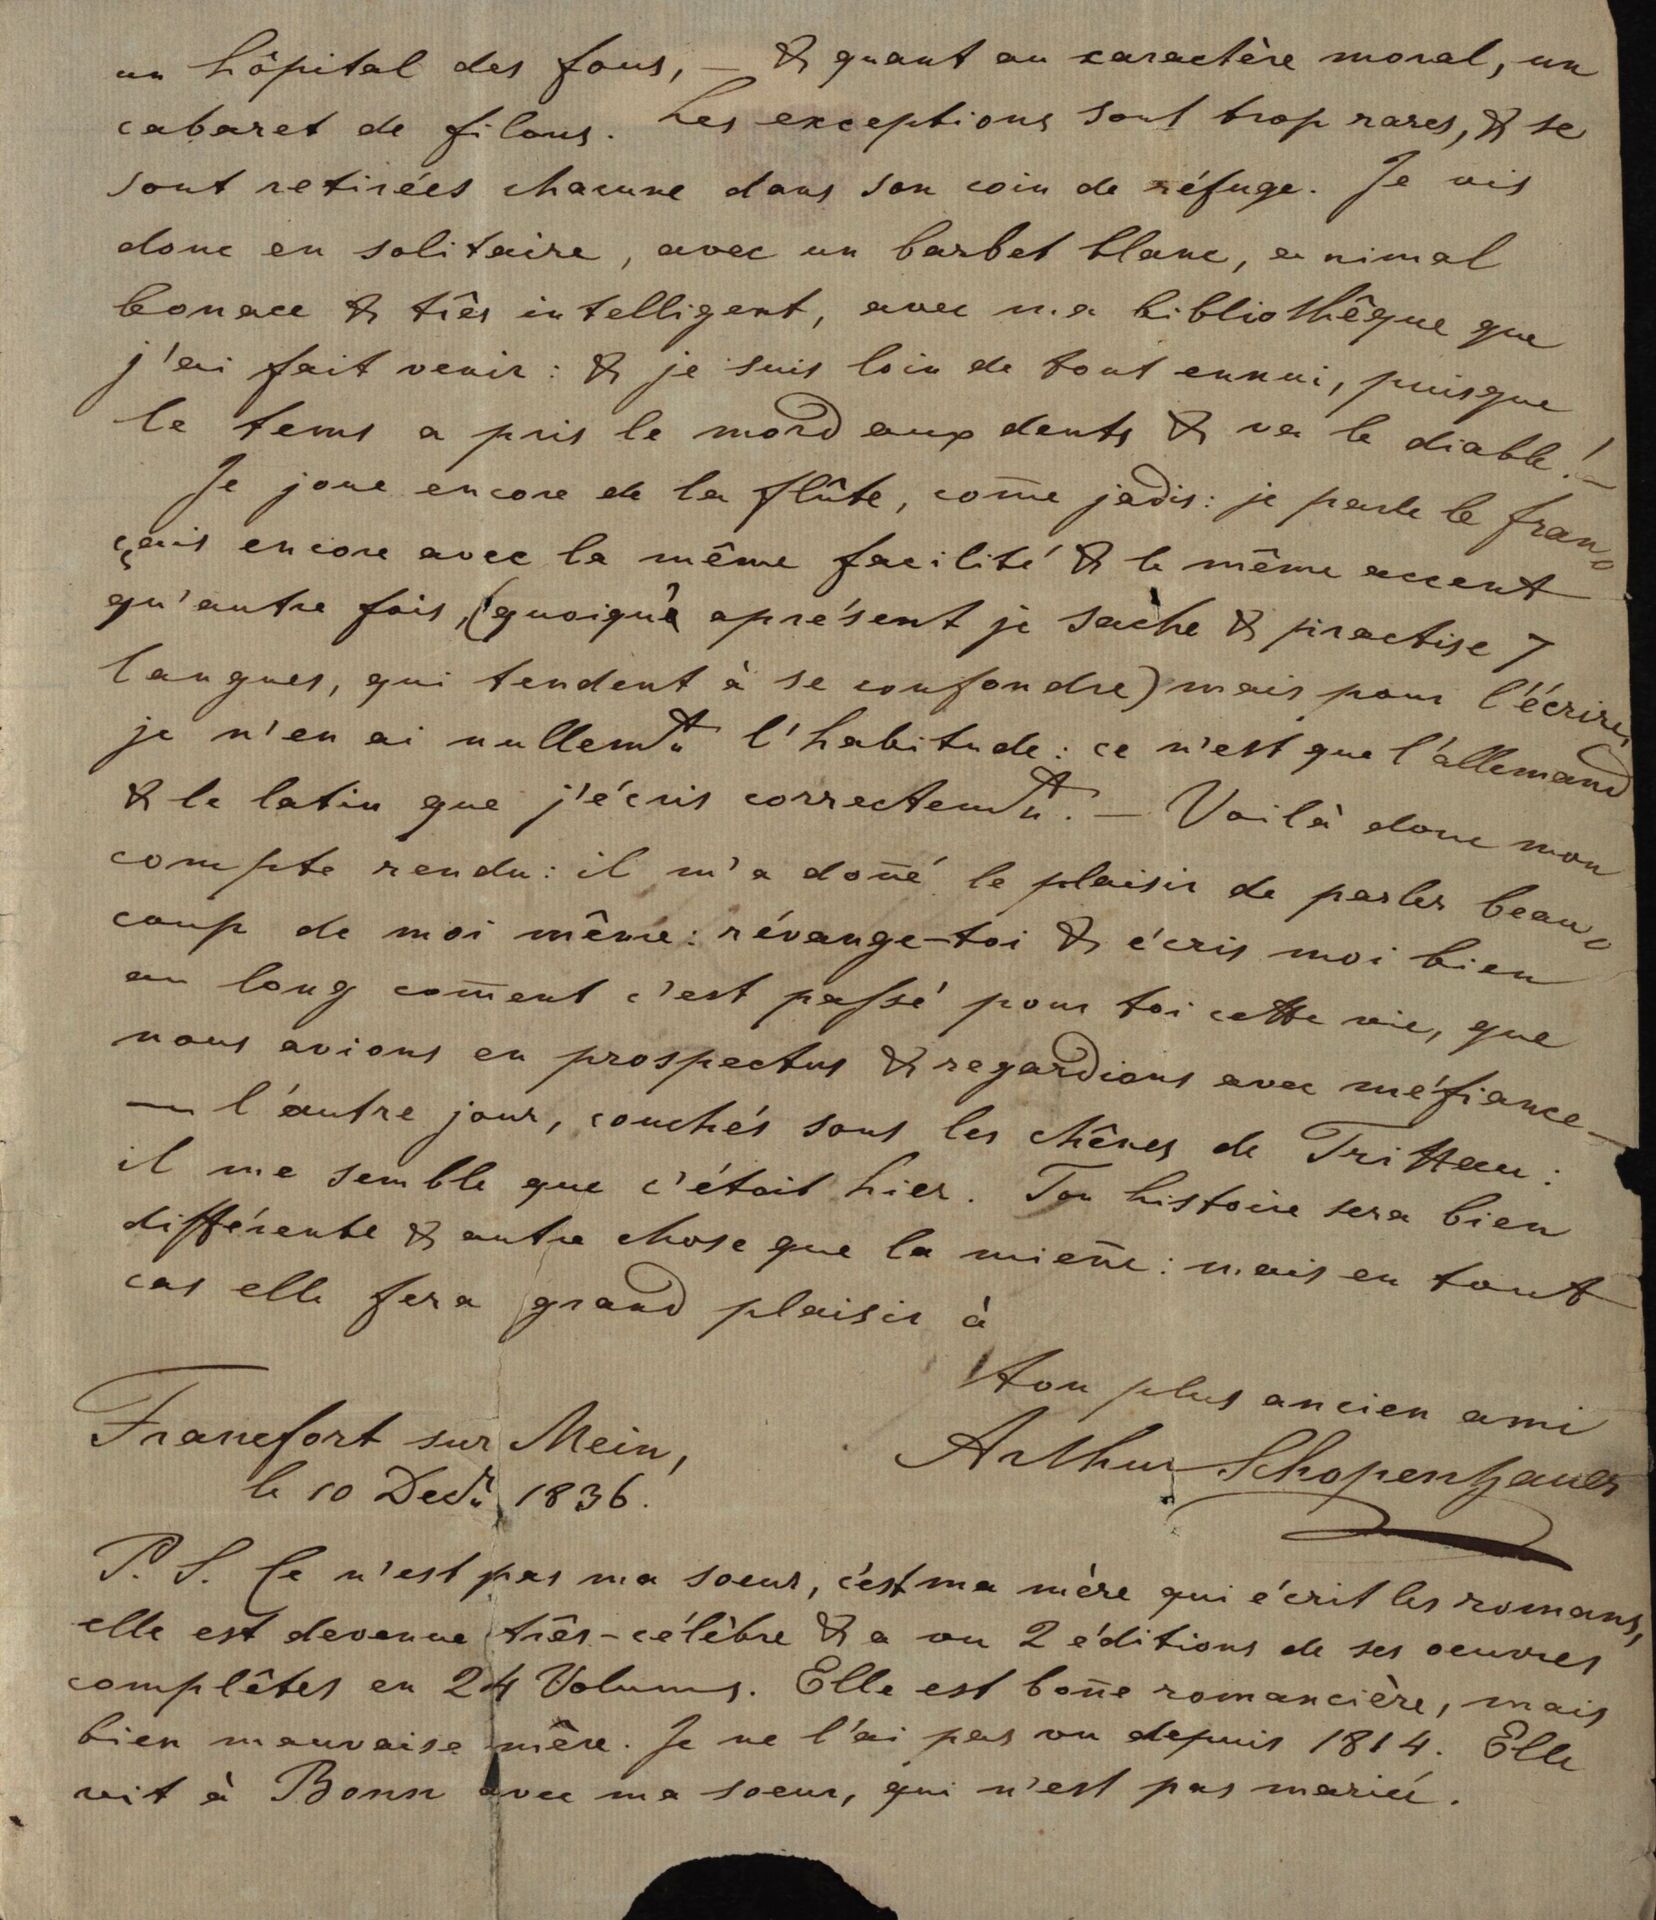 un hôpital des fous, — & quant au caractère moral, un
cabaret de filous. Les exceptions sont trop rares, & se
sont retirées chacune dans son coin de réfuge. Je vis
donc en solitaire, avec un barbet blanc, animal
bonace & três intelligent, avec ma bibliothêque que
j'ai fait venir: & je suis loin de tout ennui, puisque
le tems a pris le mord aux dents & va le diable! —
Je joue encore de la flûte, com̄e jadis: je parle le fran=
çais encore avec la même facilité & le même accent
qu'autre fois, (quoiqu'à aprésent je sache & practise 7
langues, qui tendent à se confondre) mais pour l'écrire,
je n'en ai nullemt l'habitude: ce n'est que l'allemand
& le latin que j'écris correctemt. — Voilà donc mon
compte rendu: il m'a don̄é le plaisir de parler beau=
coup de moi même: révange-toi & écris moi bien
au long com̄ent c'est paſsé pour toi cette vie, que
nous avions en prospectus & regardions avec méfiance —
— l'autre jour, couchés sous les chênes de Trittau:
il me semble que c'était hier. Ton histoire sera bien
différente & autre chose que la mien̄e: mais en tout
cas elle fera grand plaisir à
ton plus ancien ami
Arthur Schopenhauer
Francfort sur Mein,
le 10 Decbr 1836.
P. S. Ce n'est pas ma soeur, c'est ma mère qui écrit les romans,
elle est devenue três-célèbre & a vu 2 éditions de ses oeuvres
complêtes en 24 Volumes. Elle est bon̄e romancière, mais
bien mauvaise mère. Je ne l'ai pas vu depuis 1814. Elle
vit à Bonn avec ma soeur, qui n'est pas mariée.